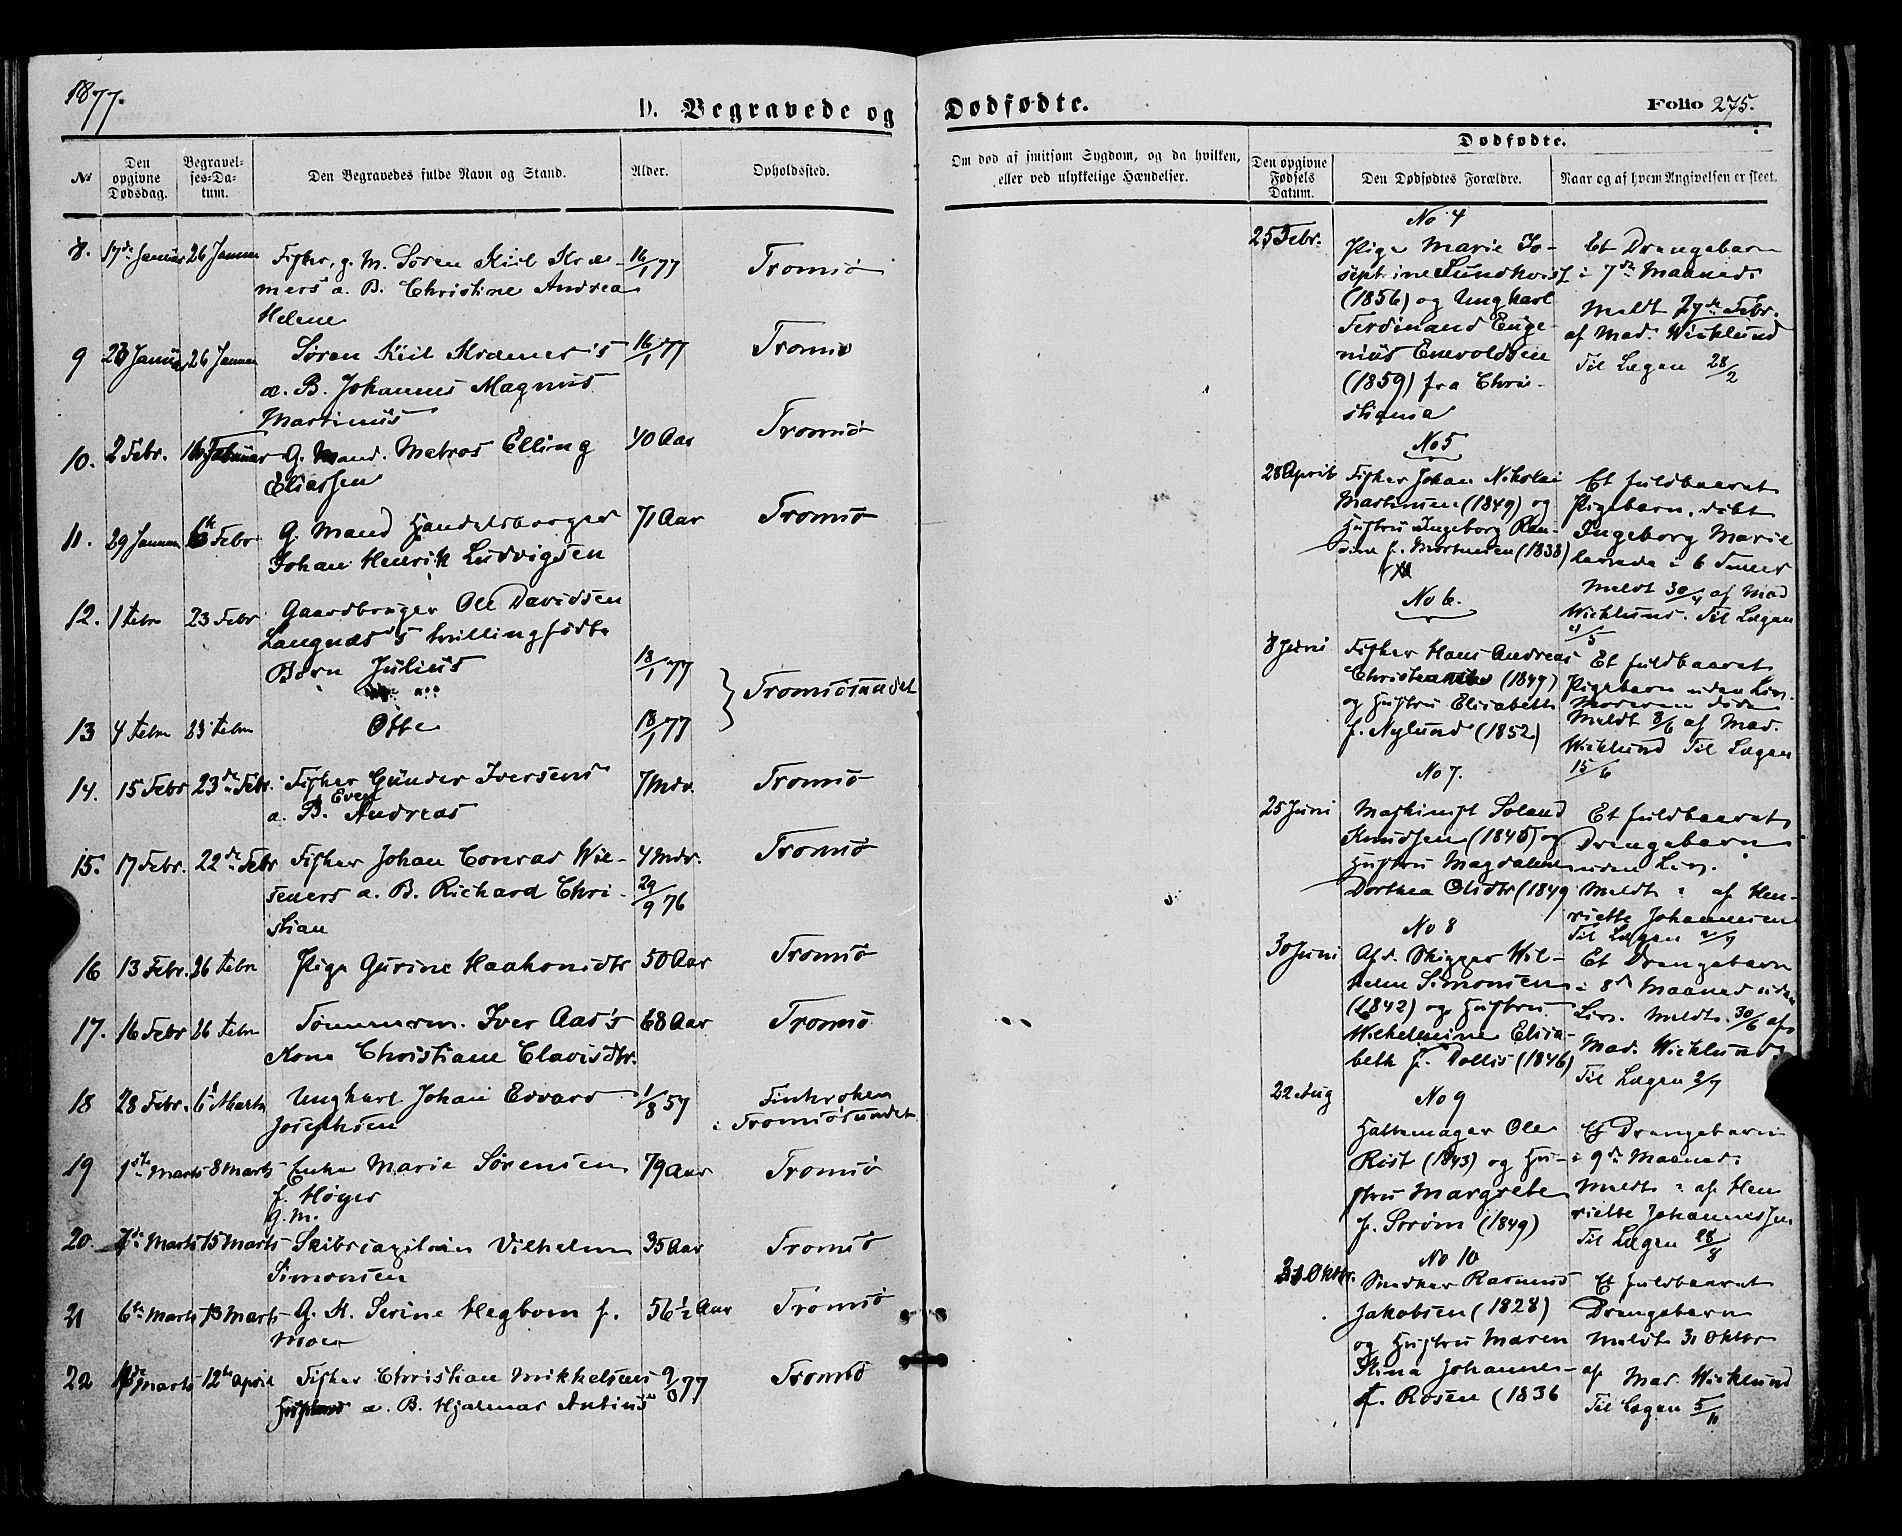 1877.
D. Begravede og Dødfødte.
Folio 275.
No
Den opgivne Dødsdag.
Begravelses-Datum.
Den Begravedes fulde Navn og Stand.
Alder.
Opholdssted.
Om død af smitsom Sygdom, og da hvilken,
eller ved ulykkelige Hændelser.
Dødfødte.
Den opgivne Fødsels Datum.
Den Dødfødtes Forældre.
Naar og af hvem Angivelsen er skeet.
8. 17de Januar 26 Januar Fisker, g. M. Søren Kiil Kræ- 16/1 77 Tromsø
mers æ. B. Christine Andrea
Helene
9 23 Januar 26 Januar Søren Kiil Kræmer's 16/1 77 Tromsø
æ. B. Johannes Magnus
Martinus
10. 2 Febr. Februar G. Mand. Matros Elling 40 Aar Tromsø
Eliassen
11. 29 Januar Febr G. Mand Handelsborger 71 Aar Tromsø
Johan Henrik Ludvigsen
12. 1 Febr 23 Febr Gaardbruger Ole Davidsen
Langnæs's tvillingfødte
Børn Julius 18/1 77
Tromsøsundet
13 4 Febr 23 Febr Otte 18/1 77
14. 15 Febr 23de Febr. Fisker Gunder Iversens 7 Mdr. Tromsø
Even
æ. B. Andreas
15. 17 Febr. 22de Febr Fisker Johan Conrad Wie- 4 Mdr. Tromsø
seners æ. B. Richard Chri- 29/9 76
stian
16 13 Febr. 26 Febr Pige Gurine Haakonsdtr 50 Aar Tromsø
17. 16 Febr 26 Febr Tømmerm. Iver Aas's 68 Aar Tromsø
Kone Christiane Clavisdtr.
18 28 Febr. 6 Marts Ungkarl Johan Edvard 1/8 57 Finkroken
Josefsen i Tromsøsundet
19 1ste Marts 8 Marts Enke Marie Sørensen 79 Aar Tromsø
f. Høyer
g. M.
20. 7de Marts 15 Marts Skibscapitain Vilhelm 35 Aar Tromsø
Simonsen
21 6te Marts 13 Marts G. K. Serine Hegbom f. 56 1/2 Aar Tromsø
Moe
22 Marts 12te April Fisker Christian Mikkelsens 77 Tromsø
æ. B. Hjalmar Antius
No 4
25 Febr. Pige Marie Jo- Et Drengebarn
septine Lundkvist i 7de Maaned.
(1856) og Ungkarl Meldt 27de Febr.
Ferdinand Euge- af Mad. Wicklund
nius Enevoldsen Til Lægen 28/2
(1859) fra Chri-
stiania
No 5
28 April Fisker Johan Nikolai Et fuldbaaret
Martinsen (1849) og Pigebarn, døbt
Hustru Ingeborg Ingeborg Marie
f. Mortensen (1838) levede i 6 Timer
Meldt 30/4 af Mad
Wicklund. Til Lægen
/5
No 6.
8 Juni Fisker Hans Andreas Et fuldbaaret
(1849) Pigebarn uden Liv.
og Hustru Elisabeth Moderen døde
f. Nylund (1852) Meldt 8/6 af Mad.
Wicklund Til Lægen
15/6
No 7.
25 Juni Maskinist Et fuldbaaret
Knudsen og Drengebarn
Hustru Magdalene uden Liv.
Dorthea Olsdtr (1849 Meldt af Hen-
riette Johannesen
Til Lægen
No 8
30 Juni Afd. Skipper Wil- Et Drengebarn
helm Simonsen i 8de Maaned uden
(1842) og Hustru Liv. Meldt. 30/6 af
Wilhelmine Elisa- Mad. Wicklund
beth f. Dollis (1846) Til Lægen 2/7
22 Aug No 9
Hattemager Ole Et Drengebarn
Rost (1843) og Hu- i 9de Maaned.
stru Margrete Meldt af Hen
f. Strøm (1849) riette Johannessen
Til Lægen 28/8
No 10
31 Oktbr. Snedker Rasmus Et fuldbaaret
Jakobsen (1828) Drengebarn
og Hustru Maren Meldt 31 Oktbr
Stina Johannes- af Mad. Wicklund
f. Rosen (1836 Til Lægen 5/11